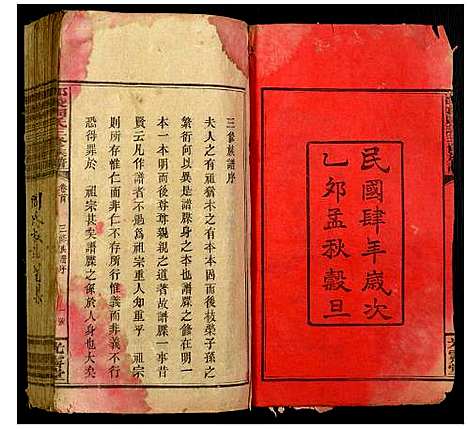 民國肆年歲次
乙卯孟秋穀旦
三修族譜序
夫人之有祖猶木之有本本固而後枝榮子孫之
繁衍何以異是譜牒身之本也譜牒之修在明一
本一本明而後尊尊親親之道著故譜牒一事昔
賢云凡作譜者不愚爲祖宗重人知重乎 祖宗
則所存惟仁而非仁不存所行惟義而非義不行
恐得罪於 祖宗甚矣譜牒之係於人身也大矣
卷首
三修族譜序
光霽堂